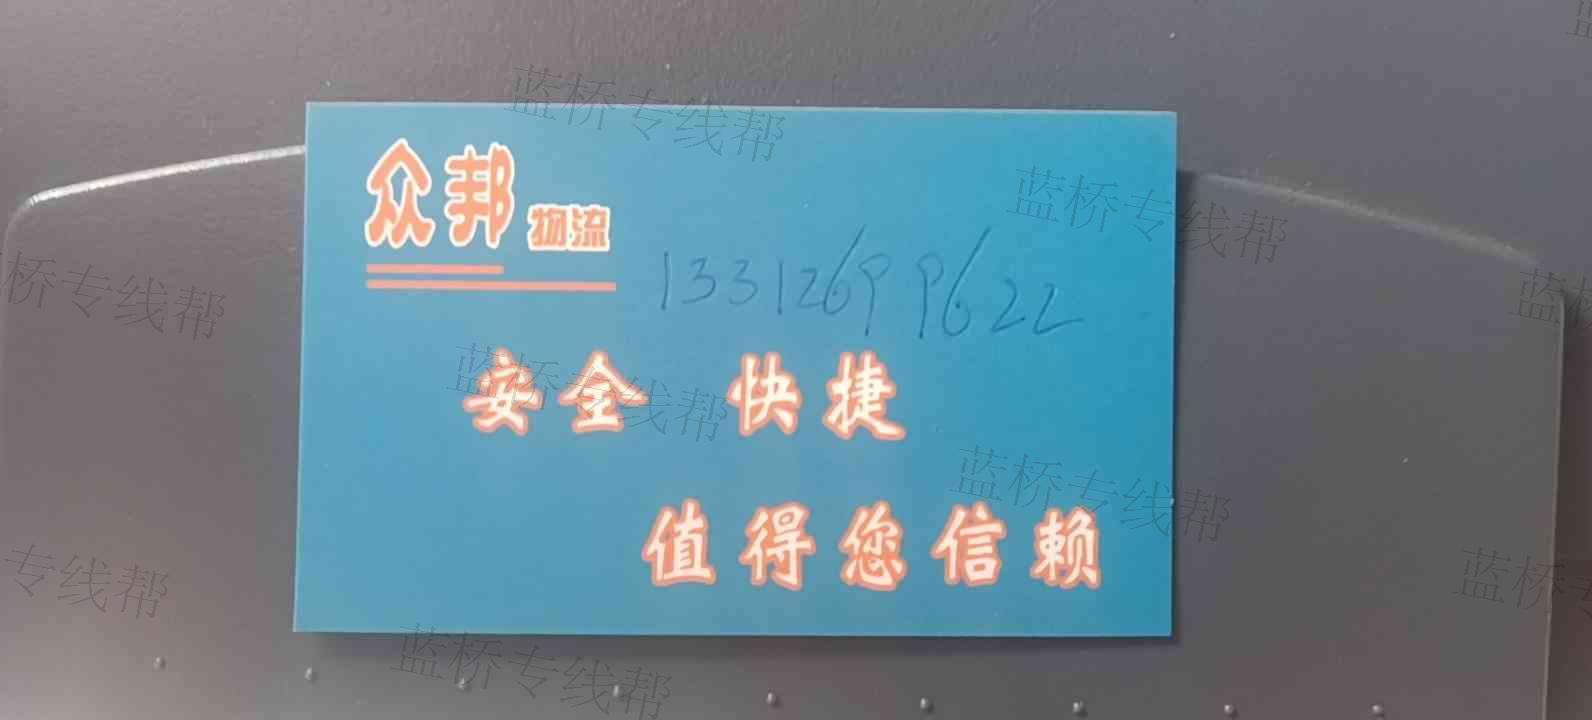 众邦物流
13312699622
安全 快捷
值得您信赖
蓝桥专线帮
蓝桥专线帮
桥专线帮
蓝桥
蓝桥专线帮
蓝桥专线帮
专线帮
蓝桥专
蓝桥专线帮